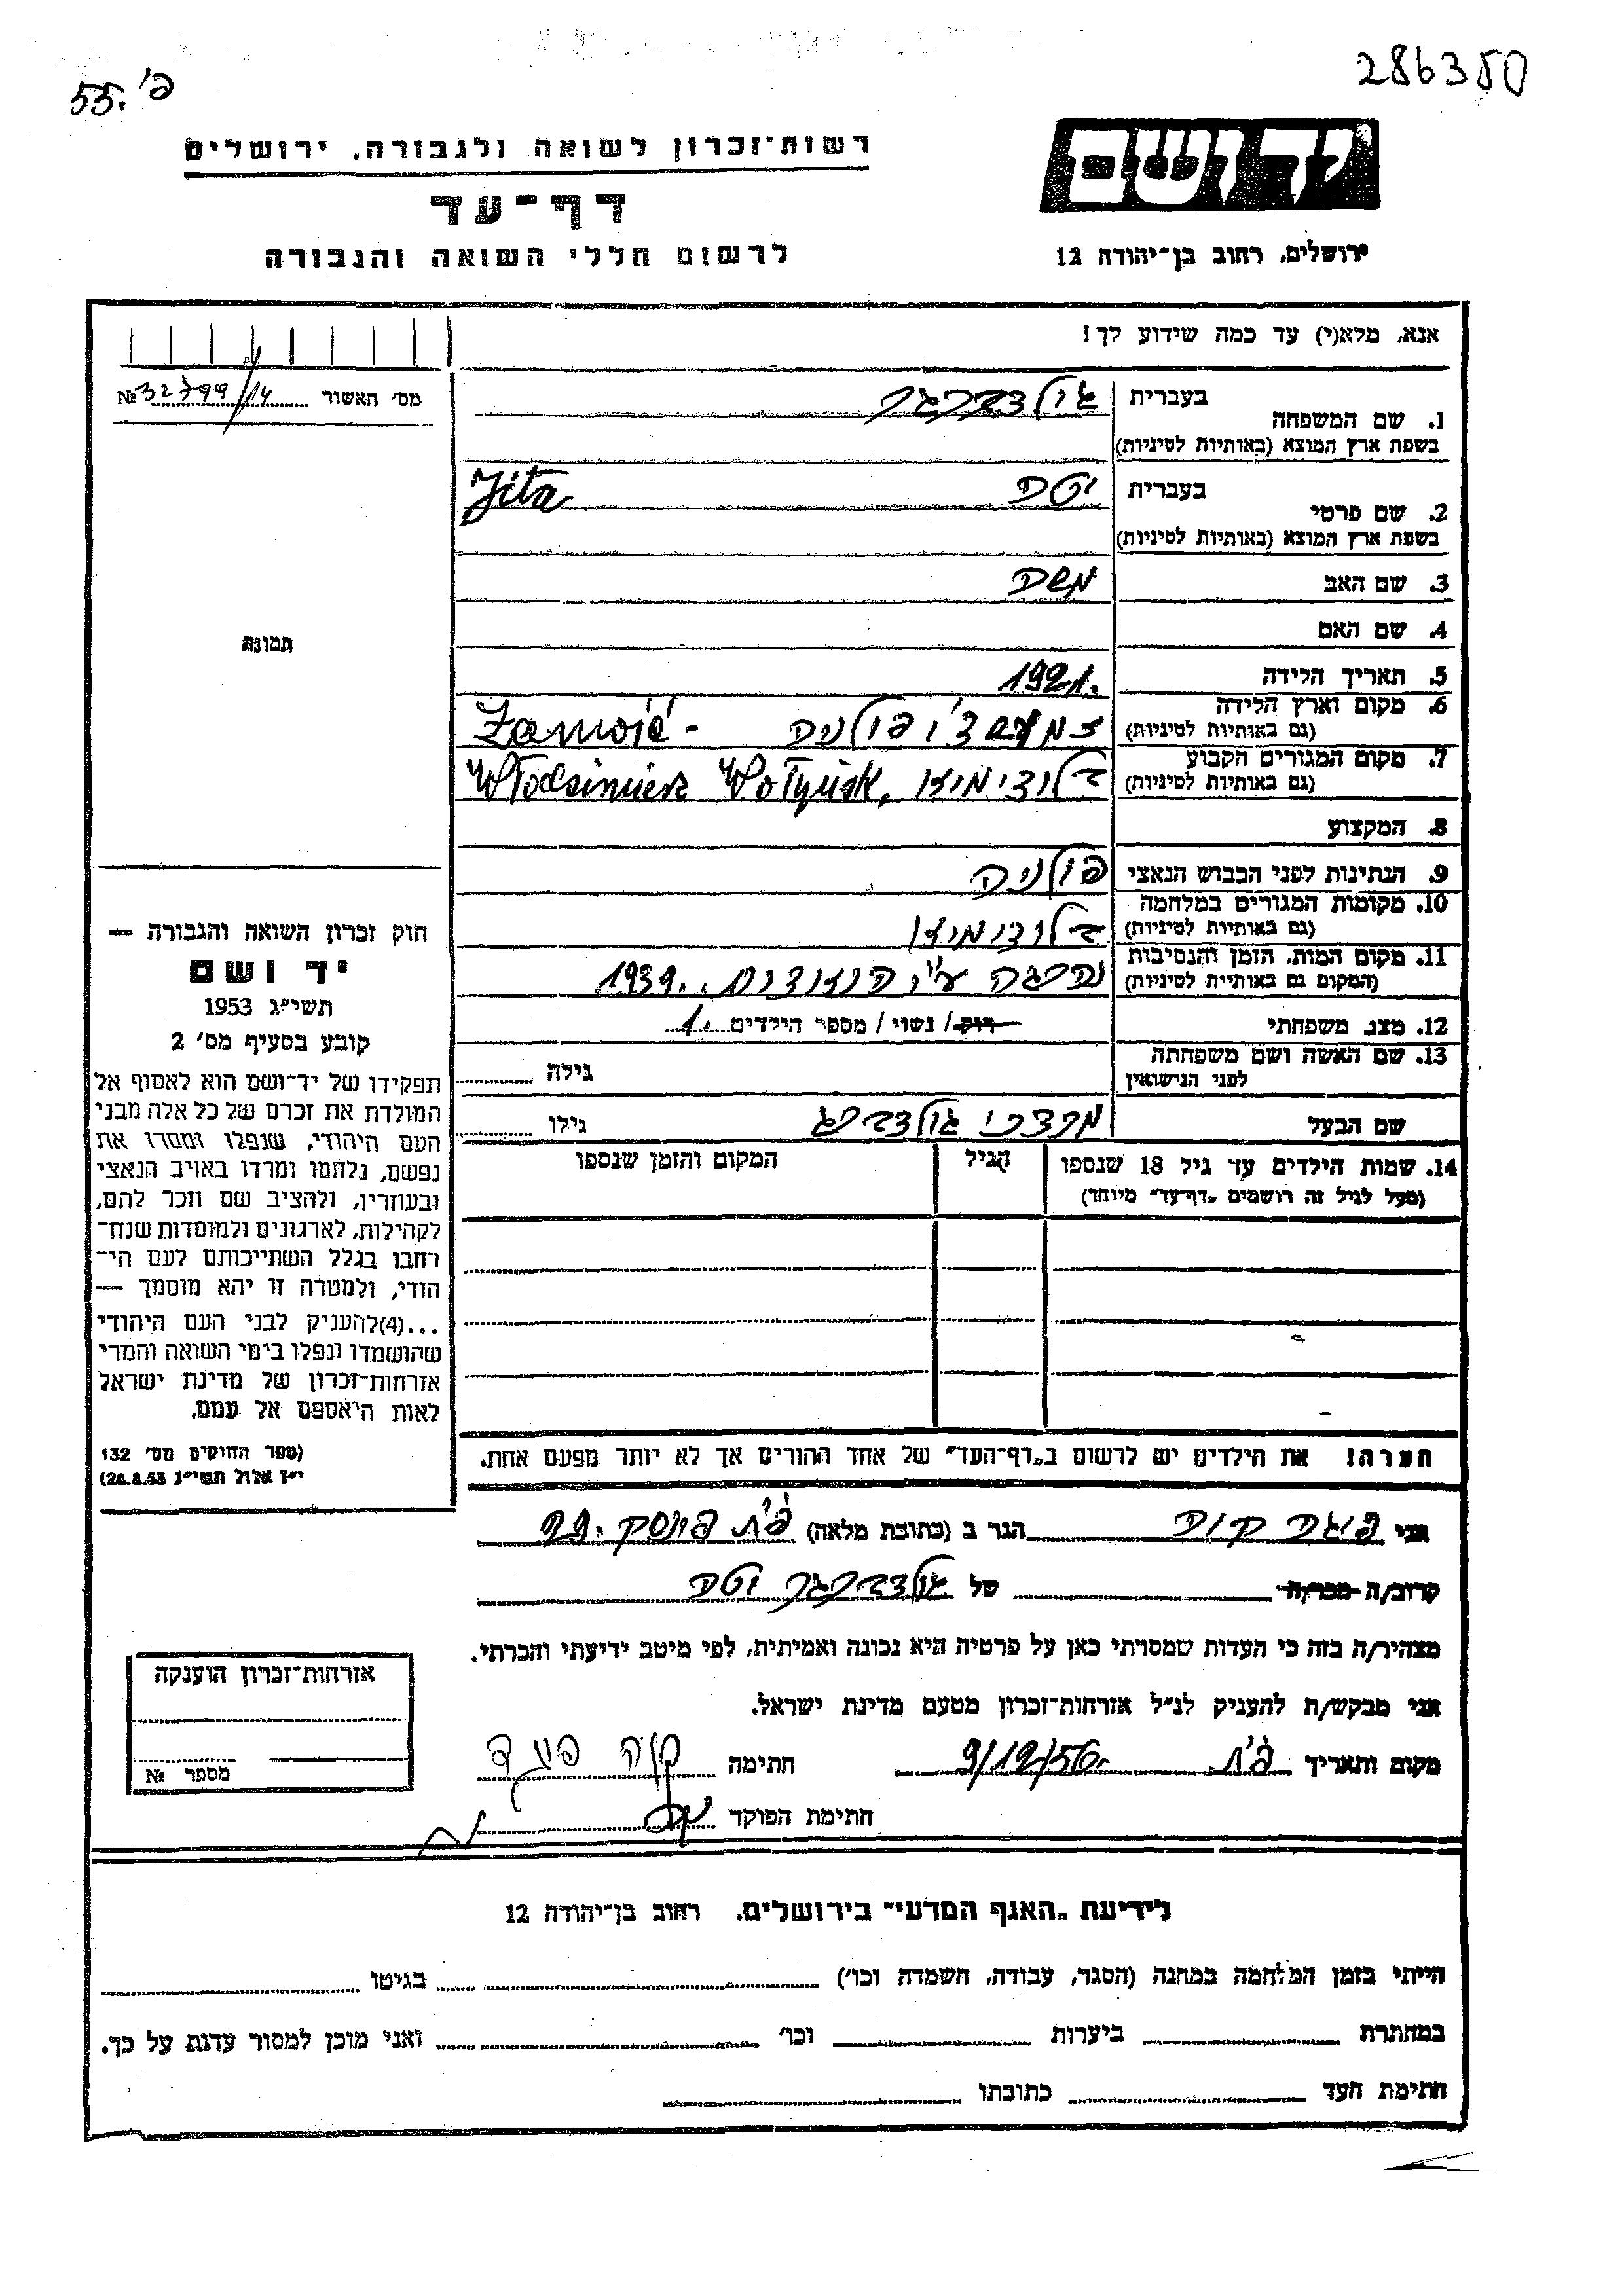 286350
פ'.55
יד ושם
רשות-זכרון לשואה ולגבורה, ירושלים
דף-עד
לרשום חללי השואה והגבורה
ירושלים, רחוב בן-יהודה 12
אנא, מלא(י) עד כמה שידוע לך!
מס' האשור №32799/14
1. שם המשפחה בעברית גולדברגר
בשפת ארץ המוצא (באותיות לטיניות)
2. שם פרטי בעברית יטה Jita
בשפת ארץ המוצא (באותיות לטיניות)
3. שם האב משה
תמונה
4. שם האם
5. תאריך הלידה 1921.
6. מקום וארץ הלידה פולניה - Zamość
(גם באותיות לטיניות)
7. מקום המגורים הקבוע Włodzimierz Wołyńsk,
(גם באותיות לטיניות)
8. המקצוע
9. הנתינות לפני הכבוש הנאצי פולניה
10. מקומות המגורים במלחמה
(גם באותיות לטיניות)
11. מקום המות, הזמן והנסיבות נהרגה ע"י 1939.
(המקום גם באותיית לטיניות)
12. מצב משפחתי רוק/ נשוי/ מספר הילדים 1.
13. שם האשה ושם משפחתה גילה
לפני הנישואין
שם הבעל מרדכי גולדברג גילו
14. שמות הילדים עד גיל 18 שנספו הגיל המקום והזמן שנספו
(מעל לגיל זה רושמים "דף-עד" מיוחד)
חוק זכרון השואה והגבורה —
יד ושם
תשי"ג 1953
קובע בסעיף מס' 2
תפקידו של יד-ושם הוא לאסוף אל
המולדת את זכרם של כל אלה מבני
העם היהודי, שנפלו ומסרו את
נפשם, נלחמו ומרדו באויב הנאצי
ובעוזריו, ולהציב שם וזכר להם,
לקהילות, לארגונים ולמוסדות שנח-
רחבו בגלל השתייכותם לעם הי-
הודי, ולמטרה זו יהא מוסמך —
...(4)להעניק לבני העם היהודי
שהושמדו ונפלו בימי השואה והמרי
אזרחות-זכרון של מדינת ישראל
לאות היאספם אל עמם.
(ספר החוקים מס' 132
י"ז אלול תשי"ג 28.8.53)
הערה! את הילדים יש לרשום ב"דף-העד" של אחד ההורים אך לא יותר מפעם אחת.
אני קוה הגר ב (כתובת מלאה) פ"ת פינסק
קרוב/ה מכר/ה של גולדברגר יטה
מצהיר/ה בזה כי העדות שמסרתי כאן על פרטיה היא נכונה ואמיתית, לפי מיטב ידיעתי והכרתי.
אני מבקש/ת להעניק לנ"ל אזרחות-זכרון מטעם מדינת ישראל.
מקום ותאריך פ"ת 9/12/56 חתימה
חתימת הפוקד
אזרחות-זכרון הוענקה
מספר №
לידיעת "האגף המדעי" בירושלים, רחוב בן-יהודה 12
הייתי בזמן המלחמה במחנה (הסגר, עבודה, השמדה וכו') בגיטו
במחתרת ביערות וכו' ואני מוכן למסור עדות על כך.
חתימת העד כתובתו